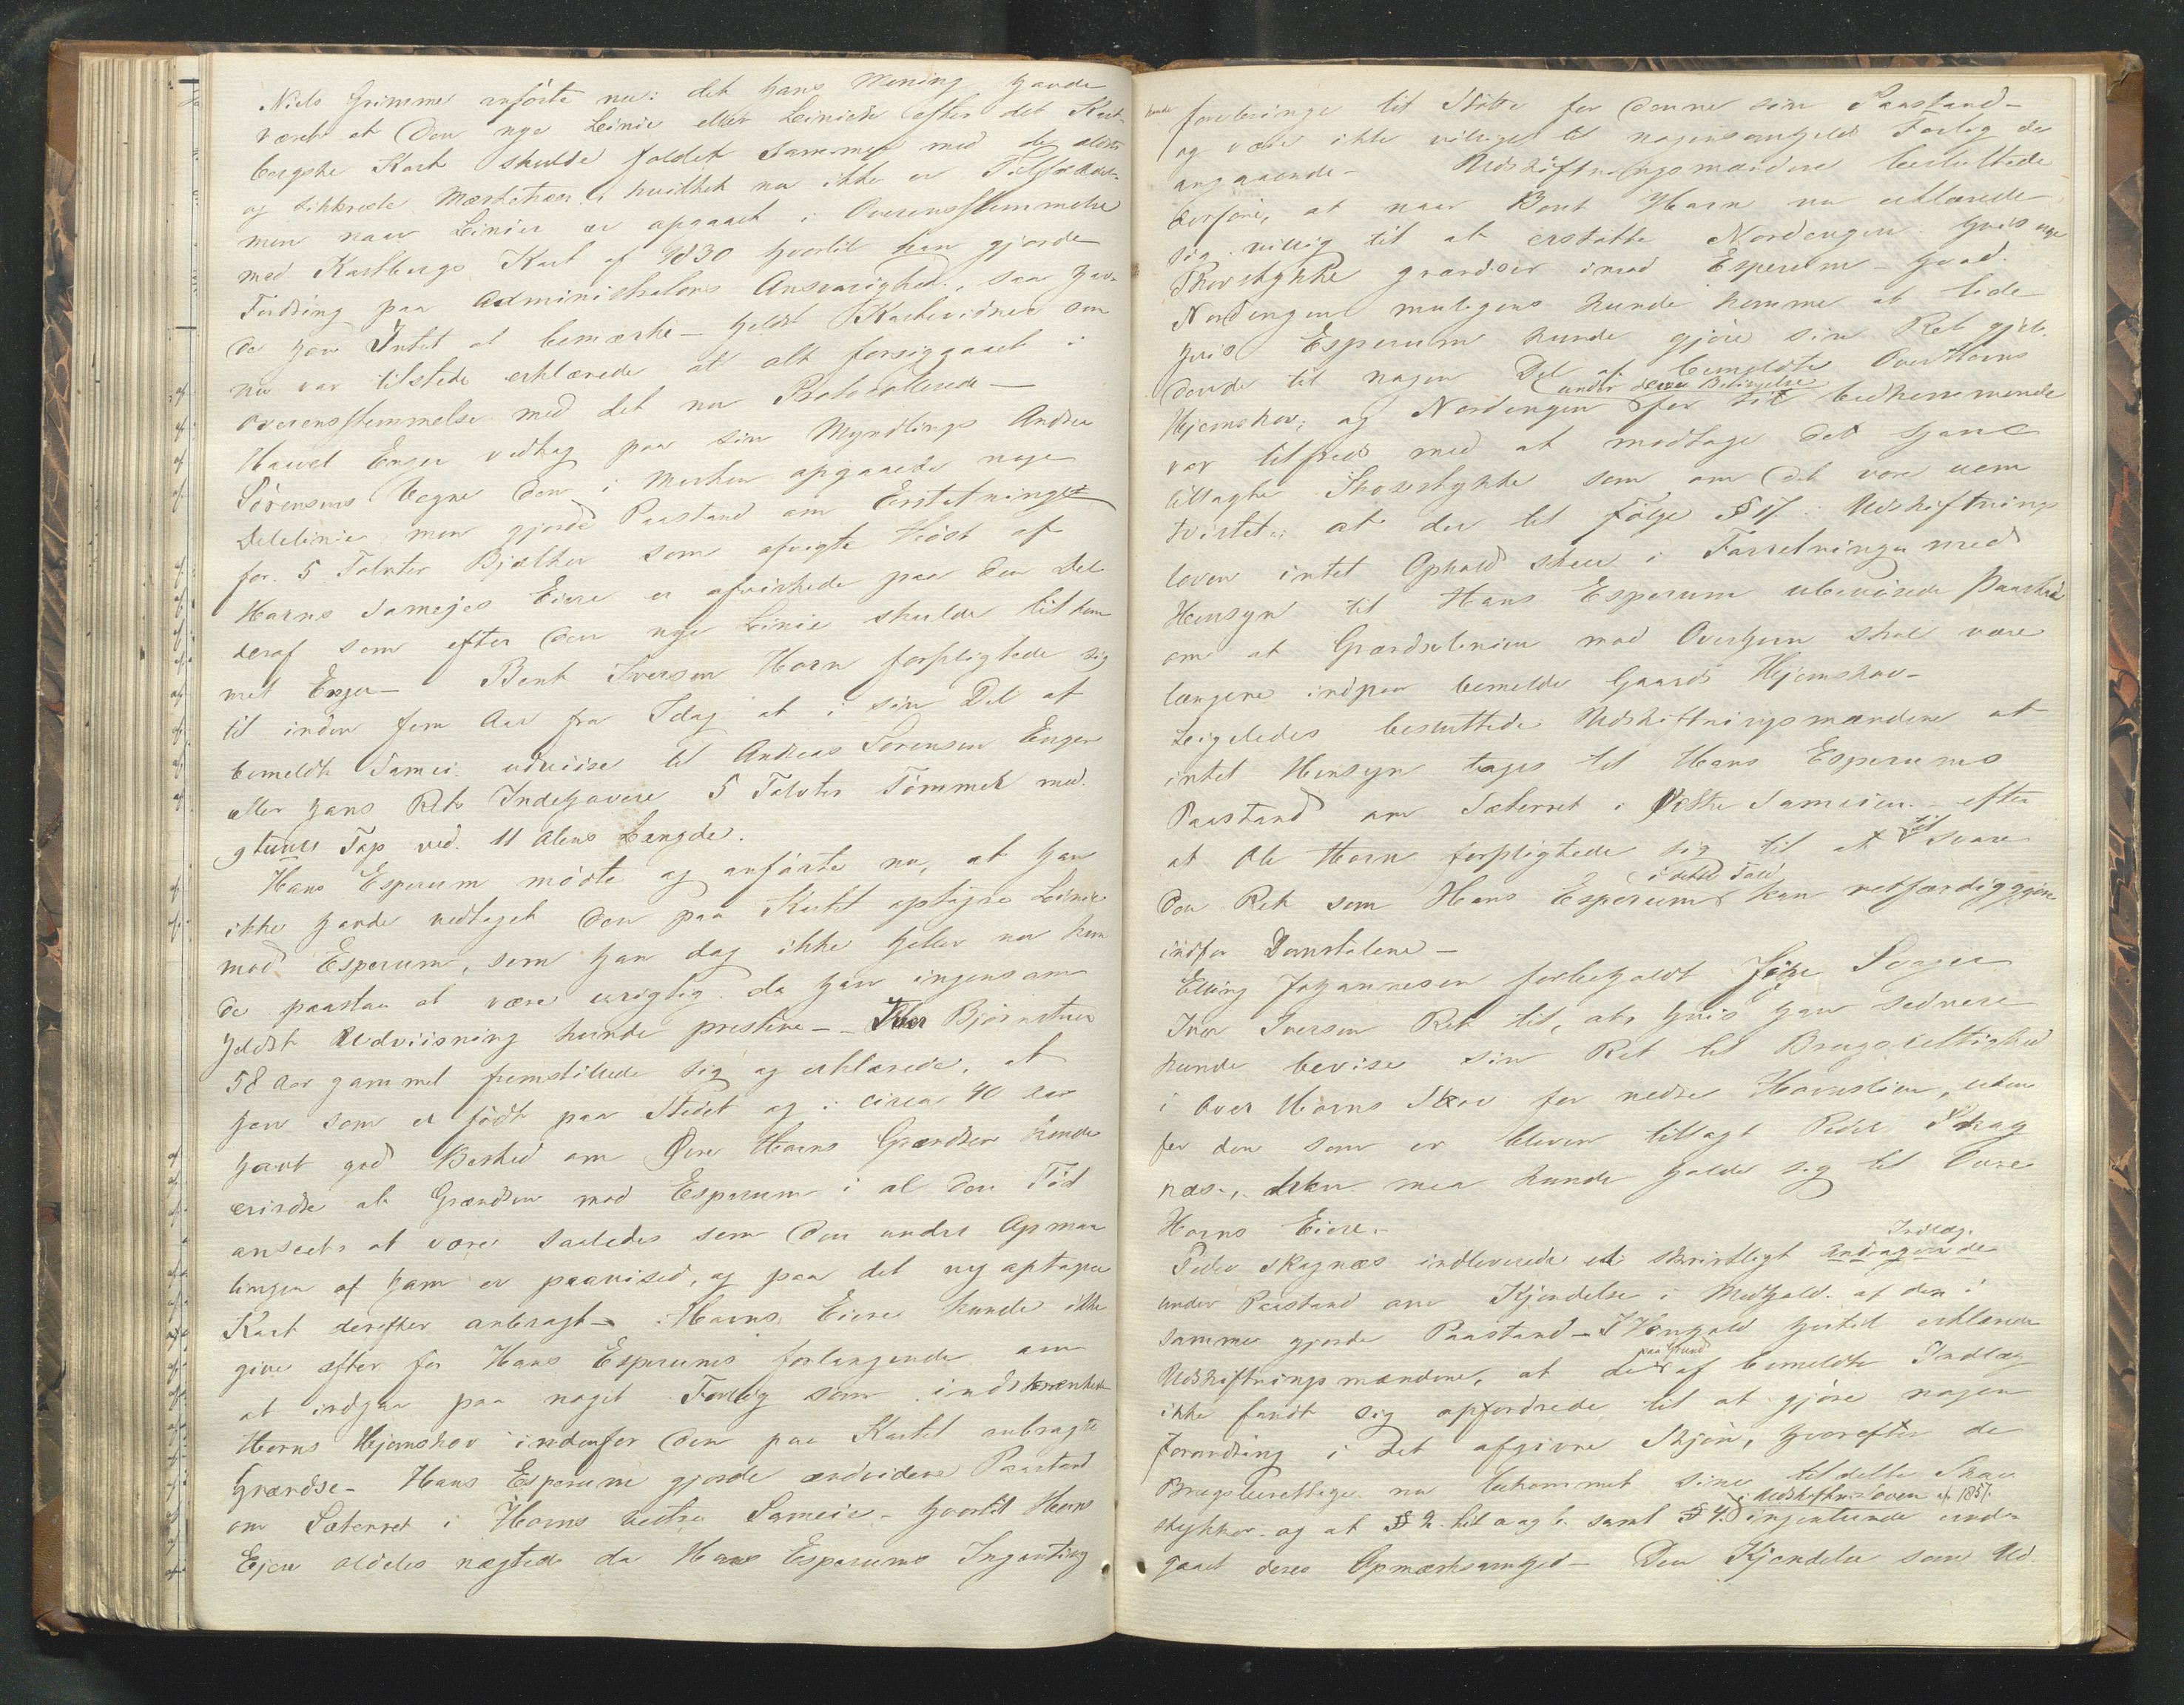 Niels Grimme anførte nu: det hans Mening havde
været at den nye Linie eller Linien efter det Kart-
bergske Kart skulde faldet sammen med de ældste
og sikkreste Mærkesteer, hvilket nu ikke er Tilfældet
men naar Linien er opgaaet i Overensstemmelse
med Kartbergs Kart af 1830 hvortil han gjorde
Fordring paa Administrators Ansvarighed, saa hav-
de han Intet at bemærke - heldst Kartevidner som
nu var tilstede erklærede at alt foresiggaaet i
Overensstemmelse med det nu Protocollerede -
Hawel Enger vedtog paa sin Myndlings Andrea
Sørensens Vegne den i Marken opgaaede nye
Delelinie, men gjorde Paastand om Erstatning
for 5 Tolvter Bjælker som afvigte Høst af
Horns Sameies Eiere er afvirkede paa den Del
deraf som efter den nye Linie skulde tilkom
met Enger - Bent Iversen Horn forpligtede sig
til inden fem Aar fra Idag at i sin Del af
bemeldte Samei udviise til Andreas Sørensen Enger
eller hans Rets Indehavere 5 Tolvter Tømmer med
9 tums Top ved 11 Alens Længde.
Hans Esperum mødte og anførte nu, at han
ikke havde vedtaget den paa Kartet optagne Linie
mod Esperum, som han dog ikke heller nu kun
de paastaa at være urigtig da han ingensom
heldst Udviisning kunde prestere - Iver Bjørnstuen
58 Aar gammel fremstillede sig og erklærede, at
han som er født paa Stedet og i circa 40 Aar
havt god Beskeed om Øvre Horns Grændser kunde
erindre at Grændsen mod Esperum i al den Tid
anseets at være saaledes som den under Opmaa
lingen af ham er paaviised, og paa det ny optagne
Kart derefter anbragt - Horns Eiere kunde ikke
give efter for Hans Esperums forlangende om
at indgaa paa noget Forlig som indskrænkede
Horns Hjemskov indenfor den paa Kartet anbragte
Grændse - Hans Esperum gjorde endvidere Paastand
om Sæterret i Horns vestre Sameie - hvortil Horns
Eiere aldeles nægtede da Hans Esperums Ingenting
kunde
forebringe til Støtte for denne sin Paastand -
og være ikke villige til nogensomheldst Forlig des
angaaende - Udskiftningsmændene besluttede
derfore, at naar Bent Horn nu erklærede
sig villig til at erstatte Nordengen hvis nye
Skovstykke grændser imod Esperum - hvad
Nordengen muligens kunde komme at lide
hvis Esperum kunde gjøre sin Ret gjel-
dende til nogen Del af bemeldte OverHorns
under denne Betingelse
Hjemskov; og Nordengen for sit vedkommende
var tilfreds med at modtage det ham
tillagte Skovstykke som om det vore uom
tvistet; at der til Følge § 17 i Udskiftnings
loven intet Ophold skeer i Forretningen med
Hensyn til Hans Esperum ubeviste Paastand
om at Grændselinien mod Overhorn skal være
længere indpaa bemeldte Gaards Hjemskov -
Ligeledes besluttede Udskiftningsmændene at
intet Hensyn toges til Hans Esperums
Paastand om Sæterret i Vestre Sameien - efter
at Ole Horn forpligtede sig til at til svare
i dette Fald
den Ret som Hans Esperum kan retfærdiggjøre
indfor Domstolene -
Elling Johannesen forbeholdt sin Svoger
Iver Iversen Ret til, at hvis han sednere
kunde bevise sin Ret til Brugsrettighed
i Over Horns Skov for nedre Hornslien, uden
for den som er bleven tillagt Peder Skag
næs, han maa kunde holde sig til Øvre
Horns Eiere -
Indlæg.
Peder Skagnæs indleverede et skriftligt Andragende
under Paastand om Kjendelse i Medhold af den i
samme gjorde Paastand - I Henhold hertil erklærer
paa Grund
Udskiftningsmændene, at de af bemeldte Indlæg
ikke fandt sig opfordrede til at gjøre nogen
Forandring i det afgivne Skjøn, hvorefter de
Brugsberettige nu bekommet sine til dette Skov
i Udskiftnings loven af 1857.
stykker og at § 2 litr a og b. samt § 4 ingenlunde unden
gaaet deres Opmærksomhed - Den Kjendelse som Ud